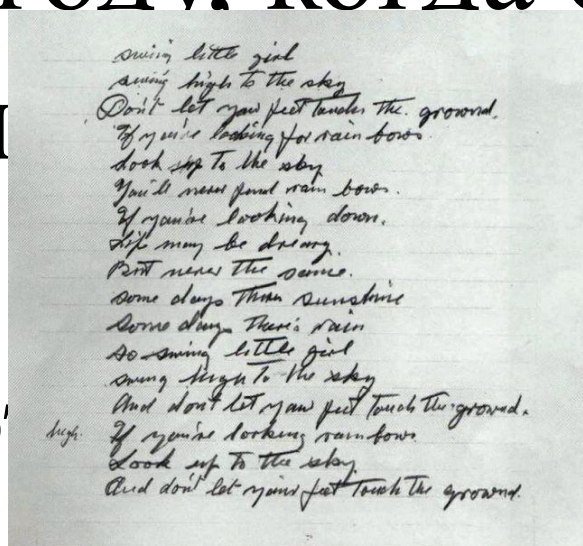 году, когда с
swing little girl
swing high to the sky
Don't let your feet touch the ground.
If you're looking for rain bows
Look up to the sky
You'll never find rain bows.
If you're looking down.
Life may be dreary.
But never the same.
some days there sunshine
Some days there's rain
so swing little girl
swing high to the sky
And don't let your feet touch the ground.
high. If you're looking rainbows
Look up to the sky
And don't let your feet touch the ground.